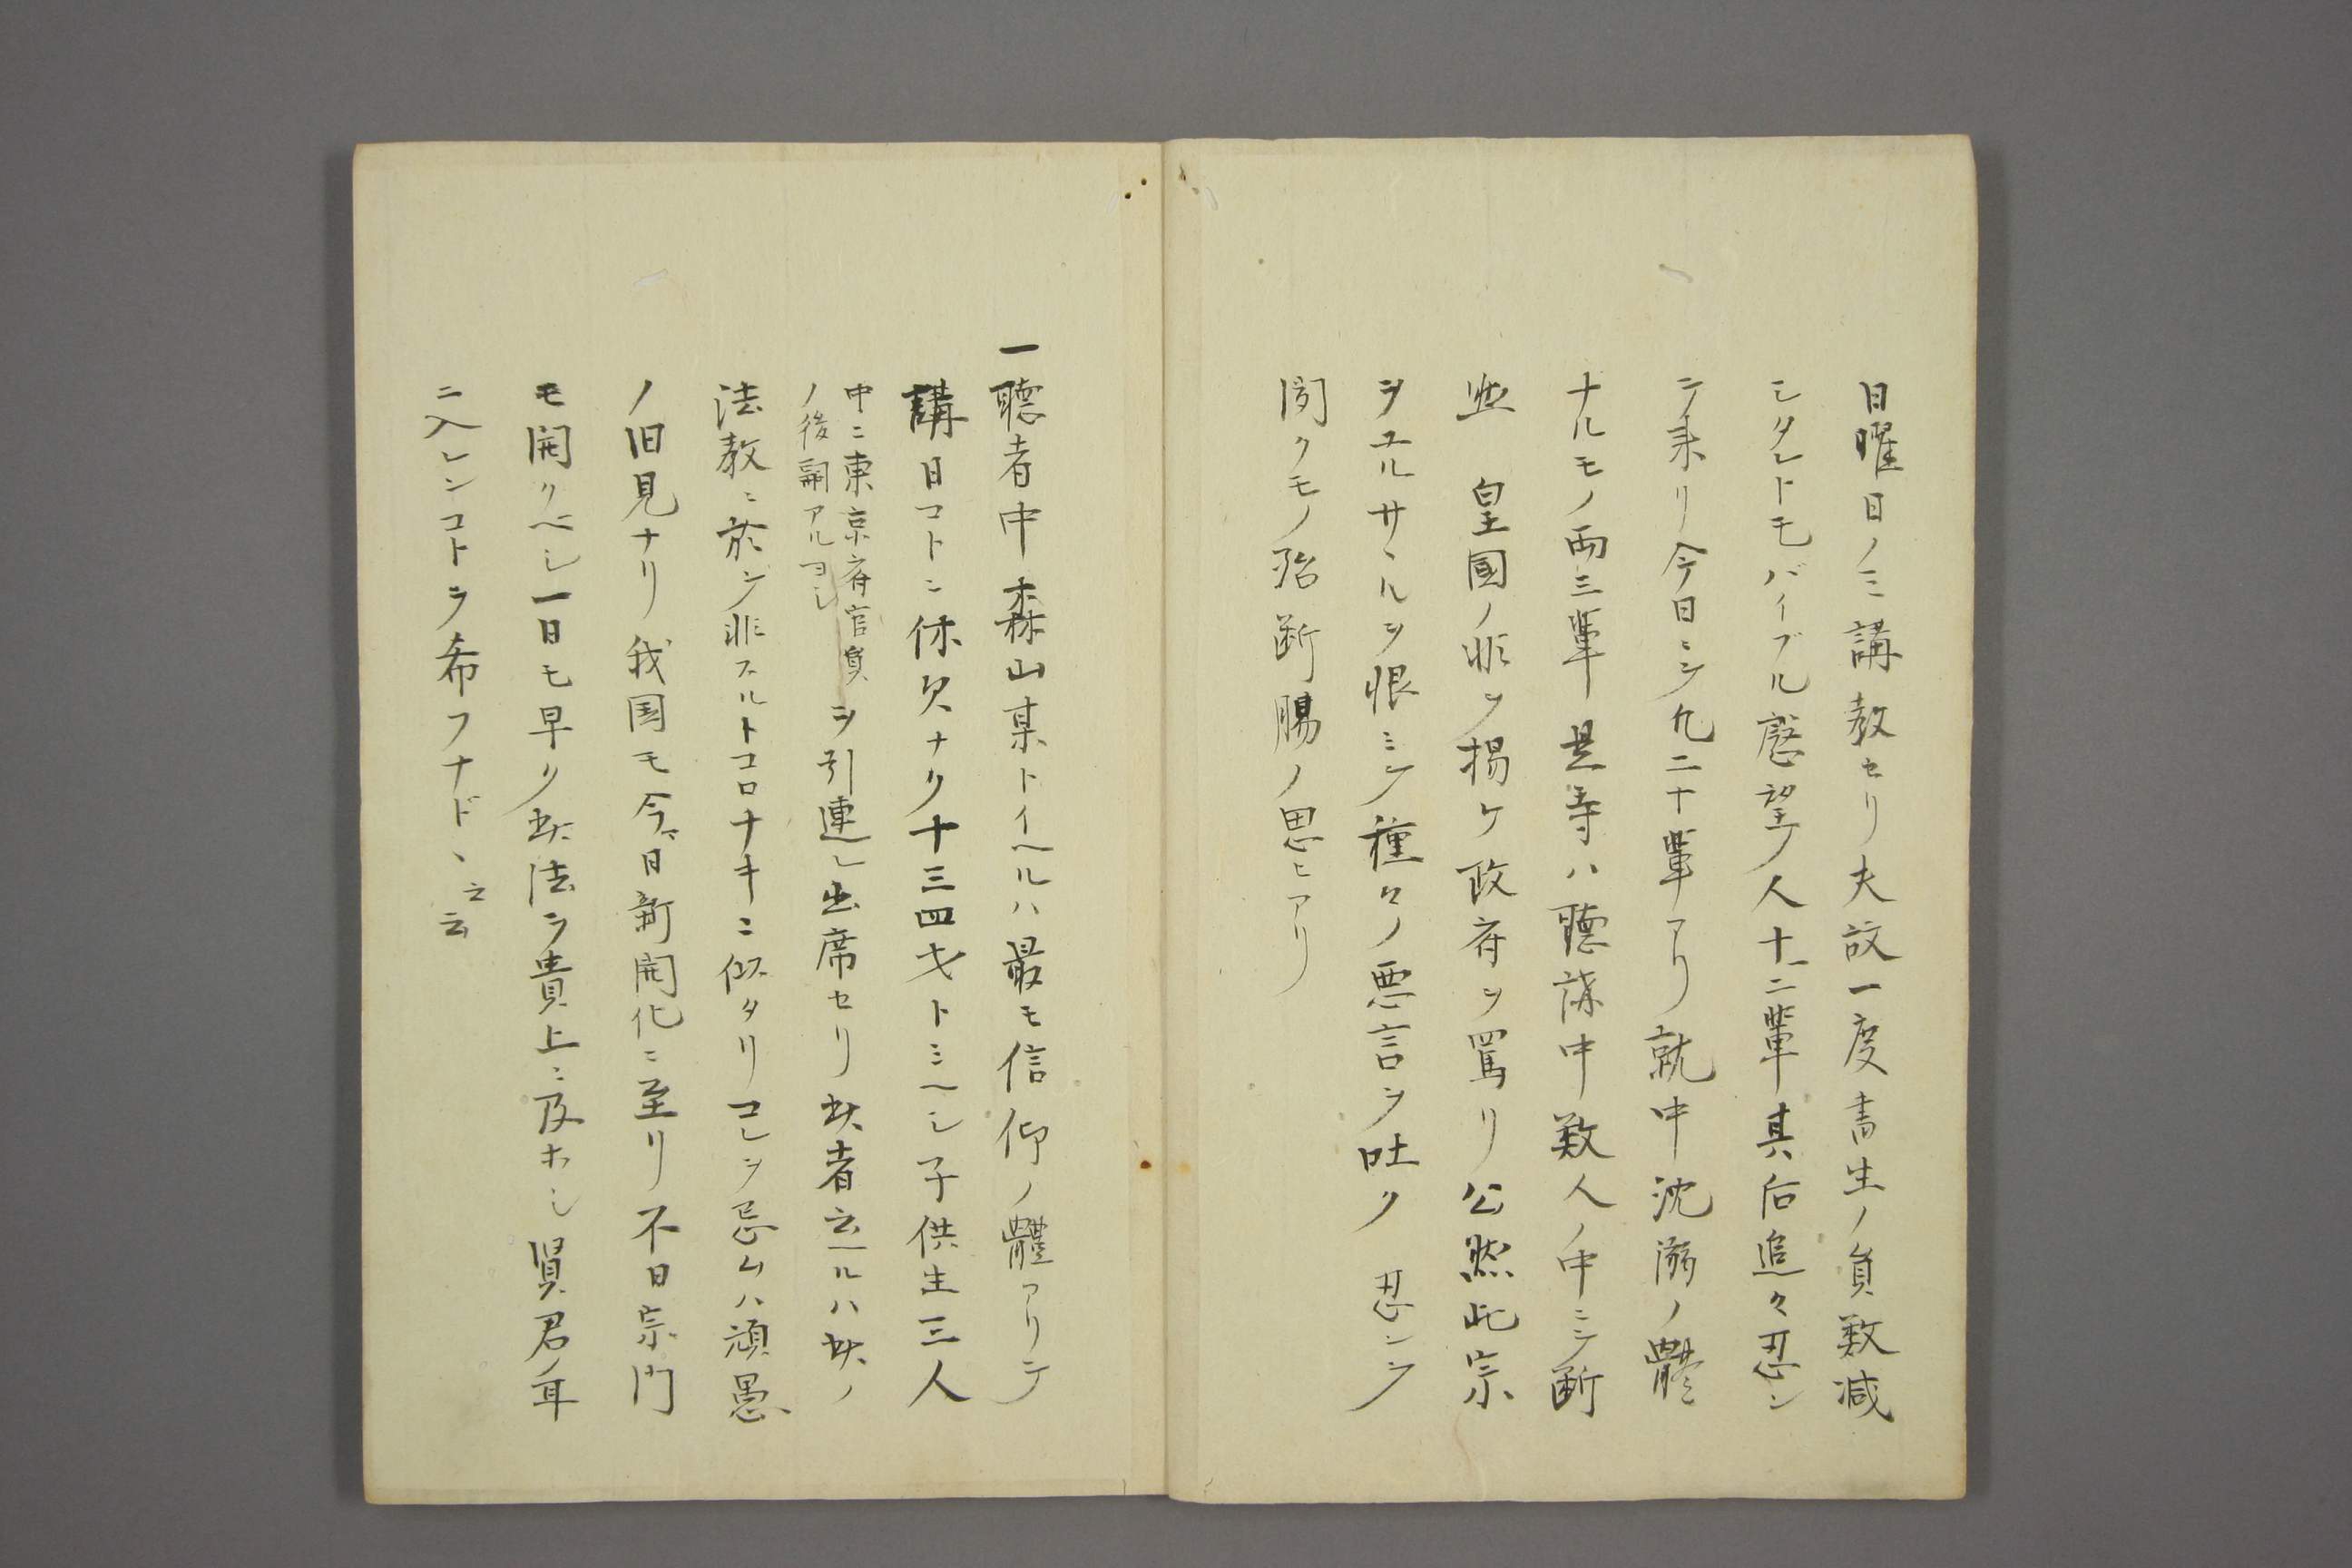 日曜日ノミ講教セリ夫故一度書生ノ員数減
シタレトモバイブル懇望ノ人十二輩其后追々忍ン
テ来リ今日ニシテ凡二十輩アリ就中沈溺ノ體
ナルモノ両三輩是等ハ聴講中数人ノ中ニシテ断
然　皇國ノ非ヲ揚ケ政府ヲ罵リ公然此宗
ヲユルサヽルヲ恨ミテ種々ノ悪言ヲ吐ク　忍ンテ
聞クモノ殆断腸ノ思ヒアリ
一聴者中森山某トイヘルハ最モ信仰ノ體アリテ
講日コトニ休欠ナク十三四才トミヘシ子供生三人
中ニ東京府官員
ノ後嗣アルヨシ
ヲ引連レ出席セリ此者云ヘルハ此ノ
法教ニ於テ非スルトコロナキニ似タリコレヲ忌ムハ頑愚
ノ旧見ナリ我国モ今日新開化ニ至リ不日宗門
モ開クベシ一日モ早ク此法ヲ貴上ニ及ホシ賢君ノ耳
ニ入レンコトヲ希フナドヽ云云